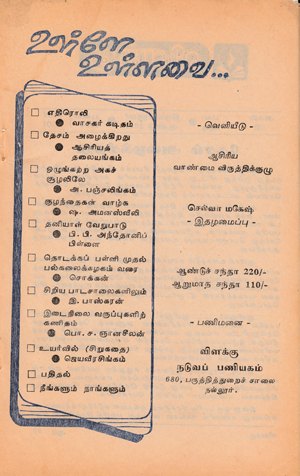 உள்ளே
உள்ளவை...
எதிரொலி
வாசகர் கடிதம்
தேசம் அழைக்கிறது
ஆசிரியத்
தலையங்கம்
ஒழுங்கற்ற அகச்
சூழலிலே
அ. பஞ்சலிங்கம்
குழந்தைகள் வாழ்க
ஷ. அமனஸ்லீலி
தனியாள் வேறுபாடு
பி. பி. அந்தோனிப்
பிள்ளை
தொடக்கப் பள்ளி முதல்
பல்கலைக்கழகம் வரை
சொக்கன்
சிறிய பாடசாலைகளிலும்
இ. பாஸ்கரன்
இடைநிலை வகுப்புகளிற்
கணிதம்
பொ. ச. ஞானசீலன்
உயர்வில் (சிறுகதை)
ஜெயவீரசிங்கம்
பதிதல்
நீங்களும் நாங்களும்
- வெளியீடு -
ஆசிரிய
வாண்மை விருத்திக்குழு
செல்வா மகேஷ்
- இதழமைப்பு -
ஆண்டுச் சந்தா 220/-
ஆறுமாத சந்தா 110/-
- பணிமனை -
விளக்கு
நடுவப் பணியகம்
680, பருத்தித்துறைச் சாலை
நல்லூர்.